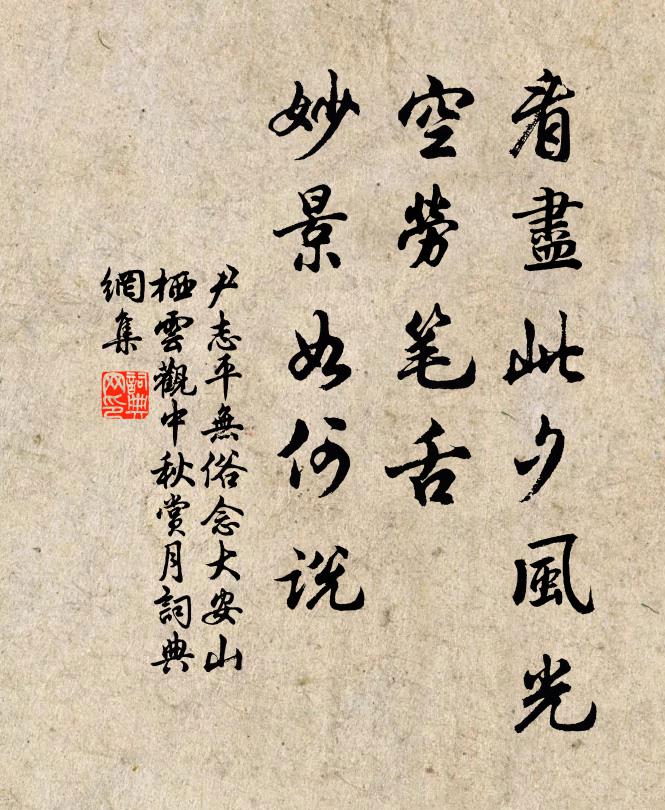 看盡此夕風光
空勞笔舌
妙景如何説
尹志平無俗念大安山
栖雲觀中秋賞月詞典
網集
詞典
网印